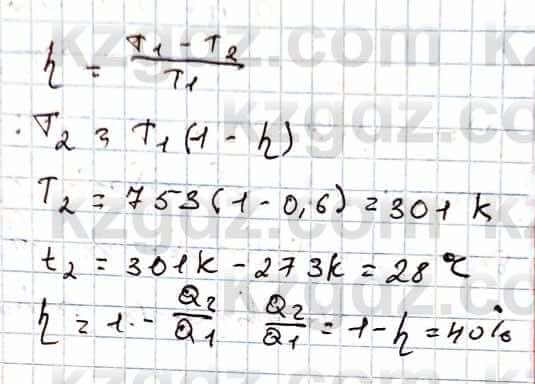 η = (T₁ - T₂)/T₁
T₂ = T₁(1 - η)
T₂ = 753(1 - 0,6) = 301 K
t₂ = 301K - 273K = 28 °C
η = 1 - Q₂/Q₁ Q₂/Q₁ = 1 - η = 40%
kzgdz.com